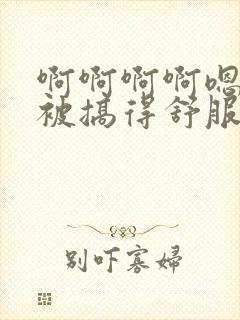 啊啊啊啊嗯
被搞得舒服
别吓寡婦